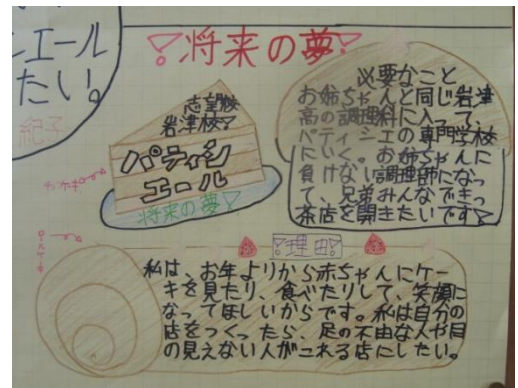 ンエール
たい。
紀子
将来の夢
志望校
岩津校
パティシ
エール
将来の夢
必要なこと
お姉ちゃんと同じ岩津
高の調理科に入って、
パティシエの専門学校
にいく。お姉ちゃんに
負けない調理部になっ
て、兄弟みんなできっ
茶店を開きたいです
理由
ロールケーキ
私は、お年よりから赤ちゃんにケー
キを見たり、食べたりして、笑顔に
なってほしいからです。私は自分の
店をつくったら、足の不由な人や目
の見えない人がこれる店にしたい。